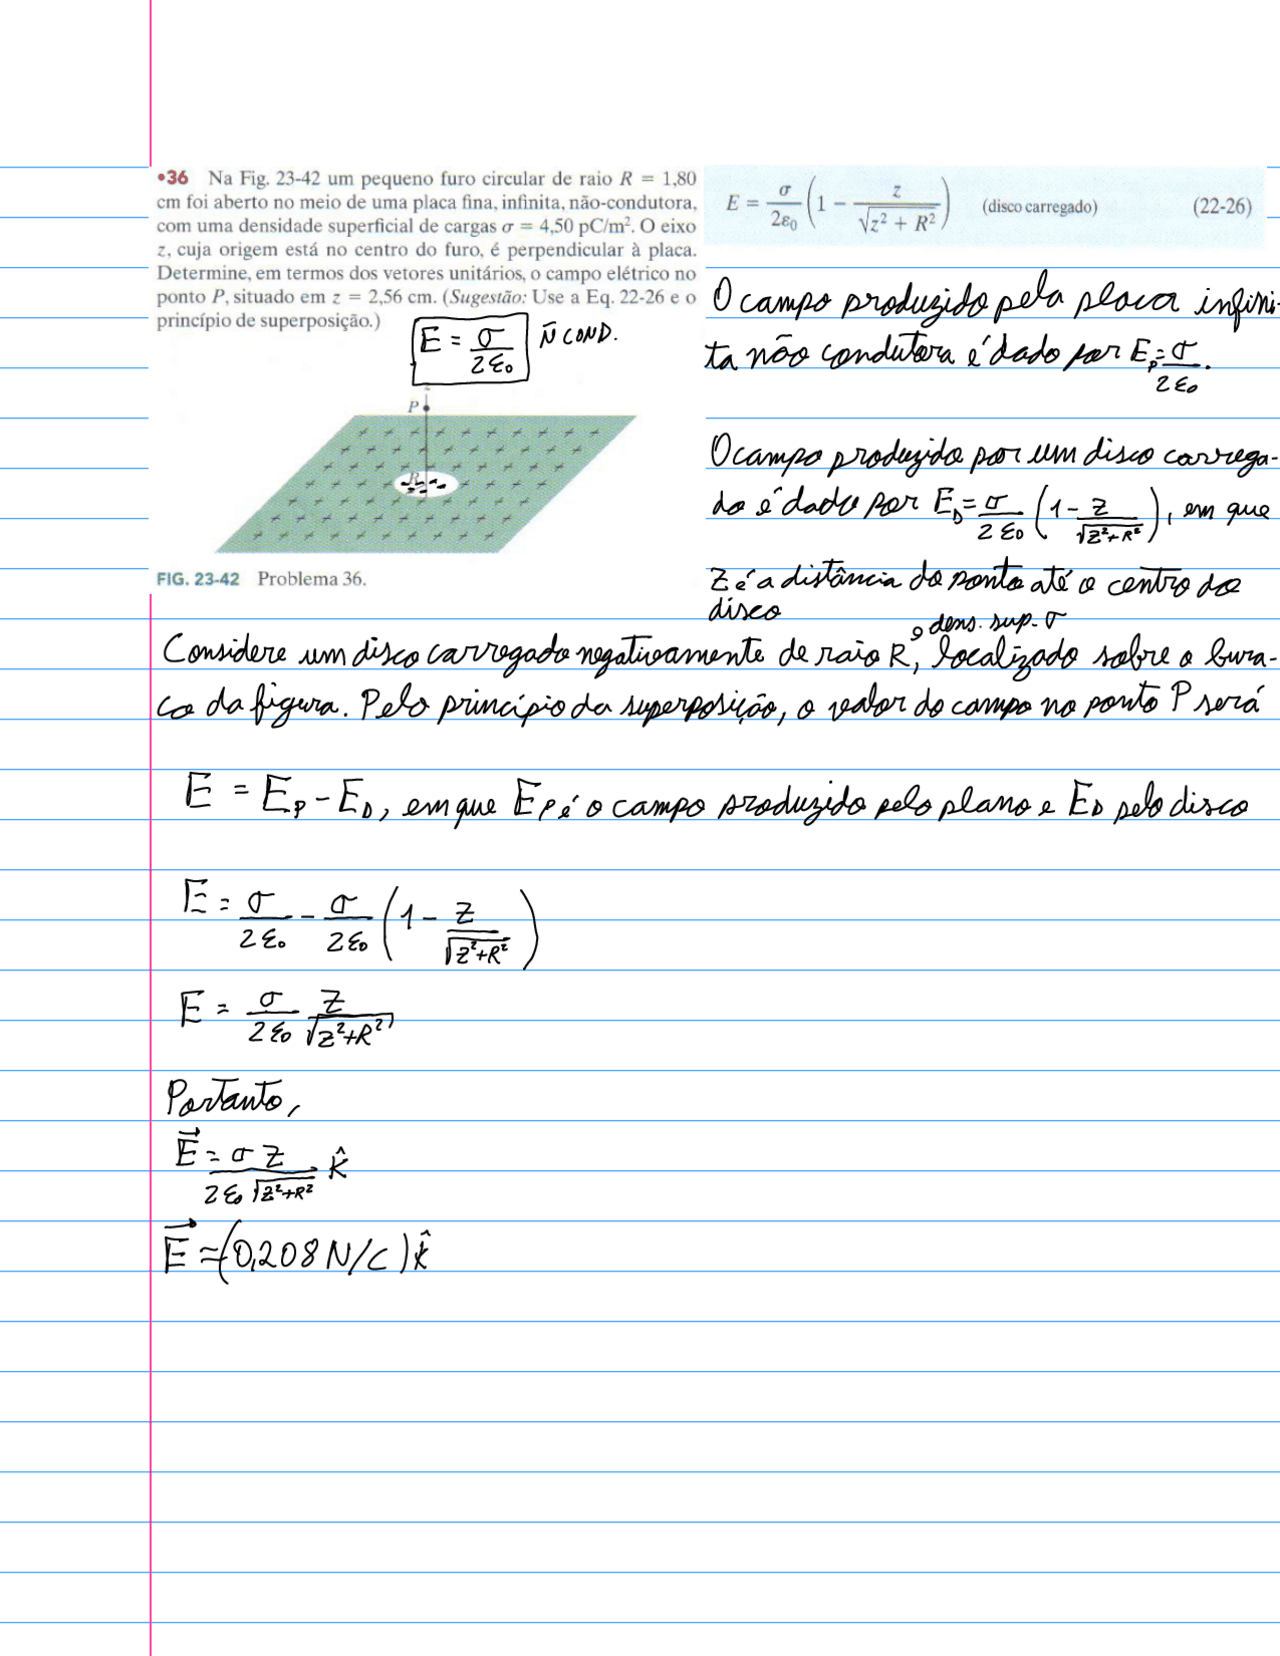 •36 Na Fig. 23-42 um pequeno furo circular de raio R = 1,80
cm foi aberto no meio de uma placa fina, infinita, não-condutora,
com uma densidade superficial de cargas σ = 4,50 pC/m². O eixo
z, cuja origem está no centro do furo, é perpendicular à placa.
Determine, em termos dos vetores unitários, o campo elétrico no
ponto P, situado em z = 2,56 cm. (Sugestão: Use a Eq. 22-26 e o
princípio de superposição.)
E = σ/2ε₀ Ñ COND.
P
R
FIG. 23-42 Problema 36.
E = σ/2ε₀ (1 − z/√(z² + R²)) (disco carregado) (22-26)
O campo produzido pela placa infini-
ta não condutora é dado por E_P = σ/2ε₀.
O campo produzido por um disco carrega-
do é dado por E_D = σ/2ε₀ (1 − z/√(z²+R²)), em que
z é a distância do ponto até o centro do
disco
e dens. sup. σ
Considere um disco carregado negativamente de raio R, localizado sobre o bura-
co da figura. Pelo princípio da superposição, o valor do campo no ponto P será
E = E_P − E_D, em que E_P é o campo produzido pelo plano e E_D pelo disco
E = σ/2ε₀ − σ/2ε₀ (1 − z/√(z²+R²))
E = σ/2ε₀ z/√(z²+R²)
Portanto,
E⃗ = σ z/(2ε₀√(z²+R²)) k̂
E⃗ = (0,208 N/C) k̂